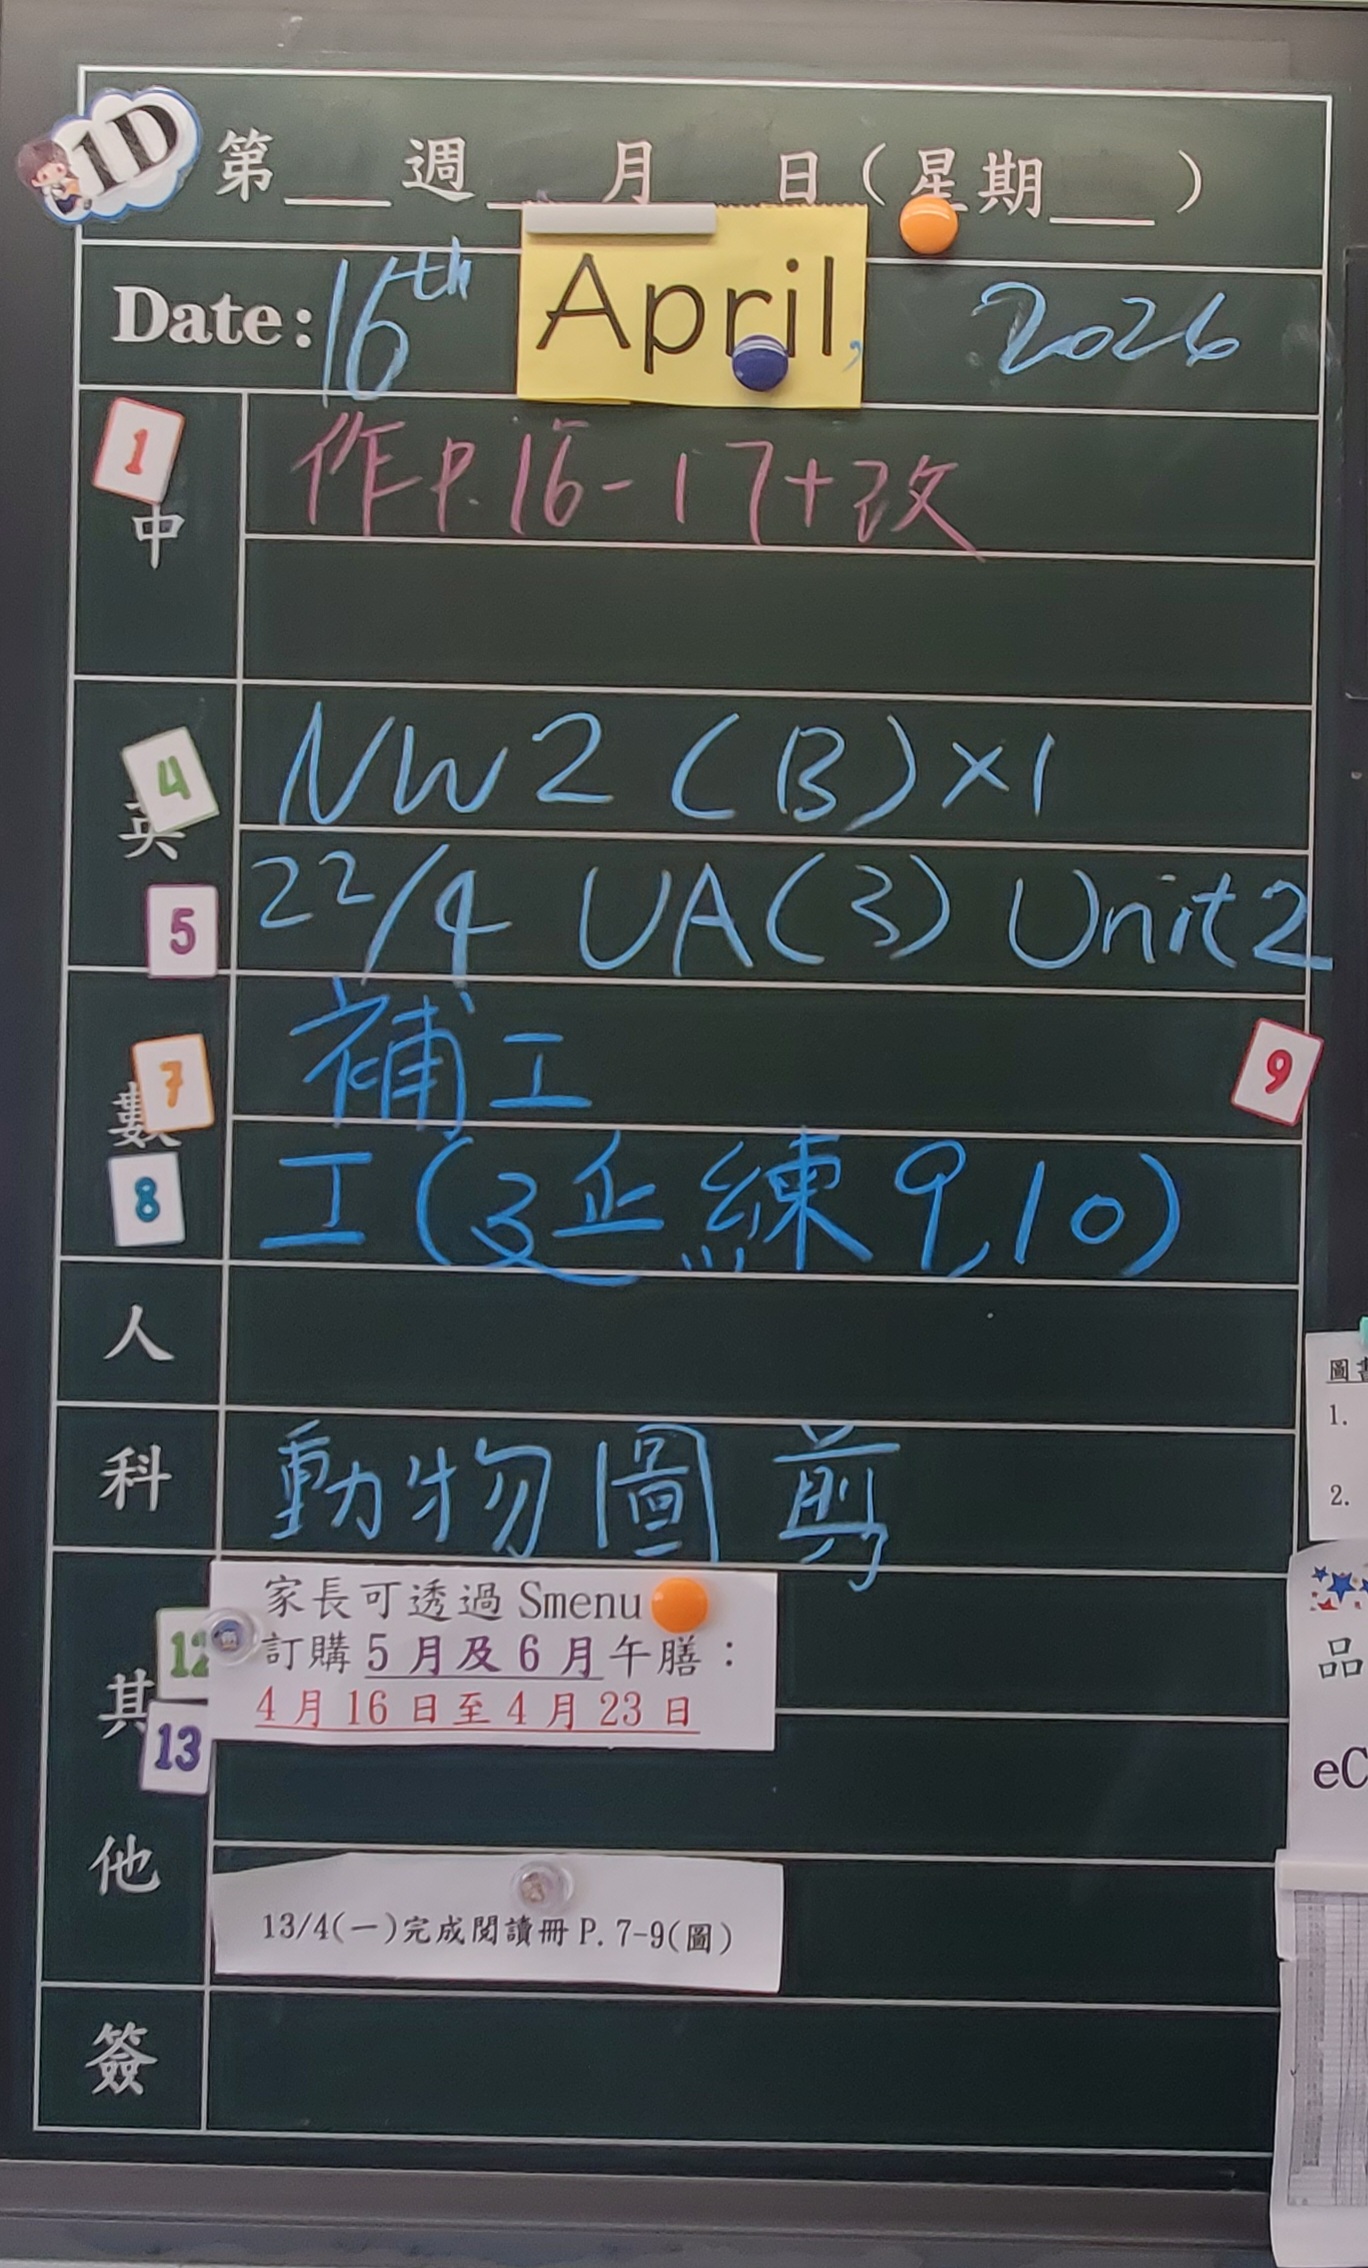 1D
第＿週＿月＿日（星期＿）
Date: 16th April, 2026
1
中
作P.16-17+改
4
英
NW2(B)×1
5
22/4 UA(3) Unit2
7
數
補工
9
8
工(延練9,10)
人
科
動物圖剪
其他
12
13
家長可透過 Smenu
訂購 5 月及 6 月午膳：
4 月 16 日至 4 月 23 日
13/4(一)完成閱讀冊 P. 7-9(圖)
簽
圖
1.
2.
品
eC